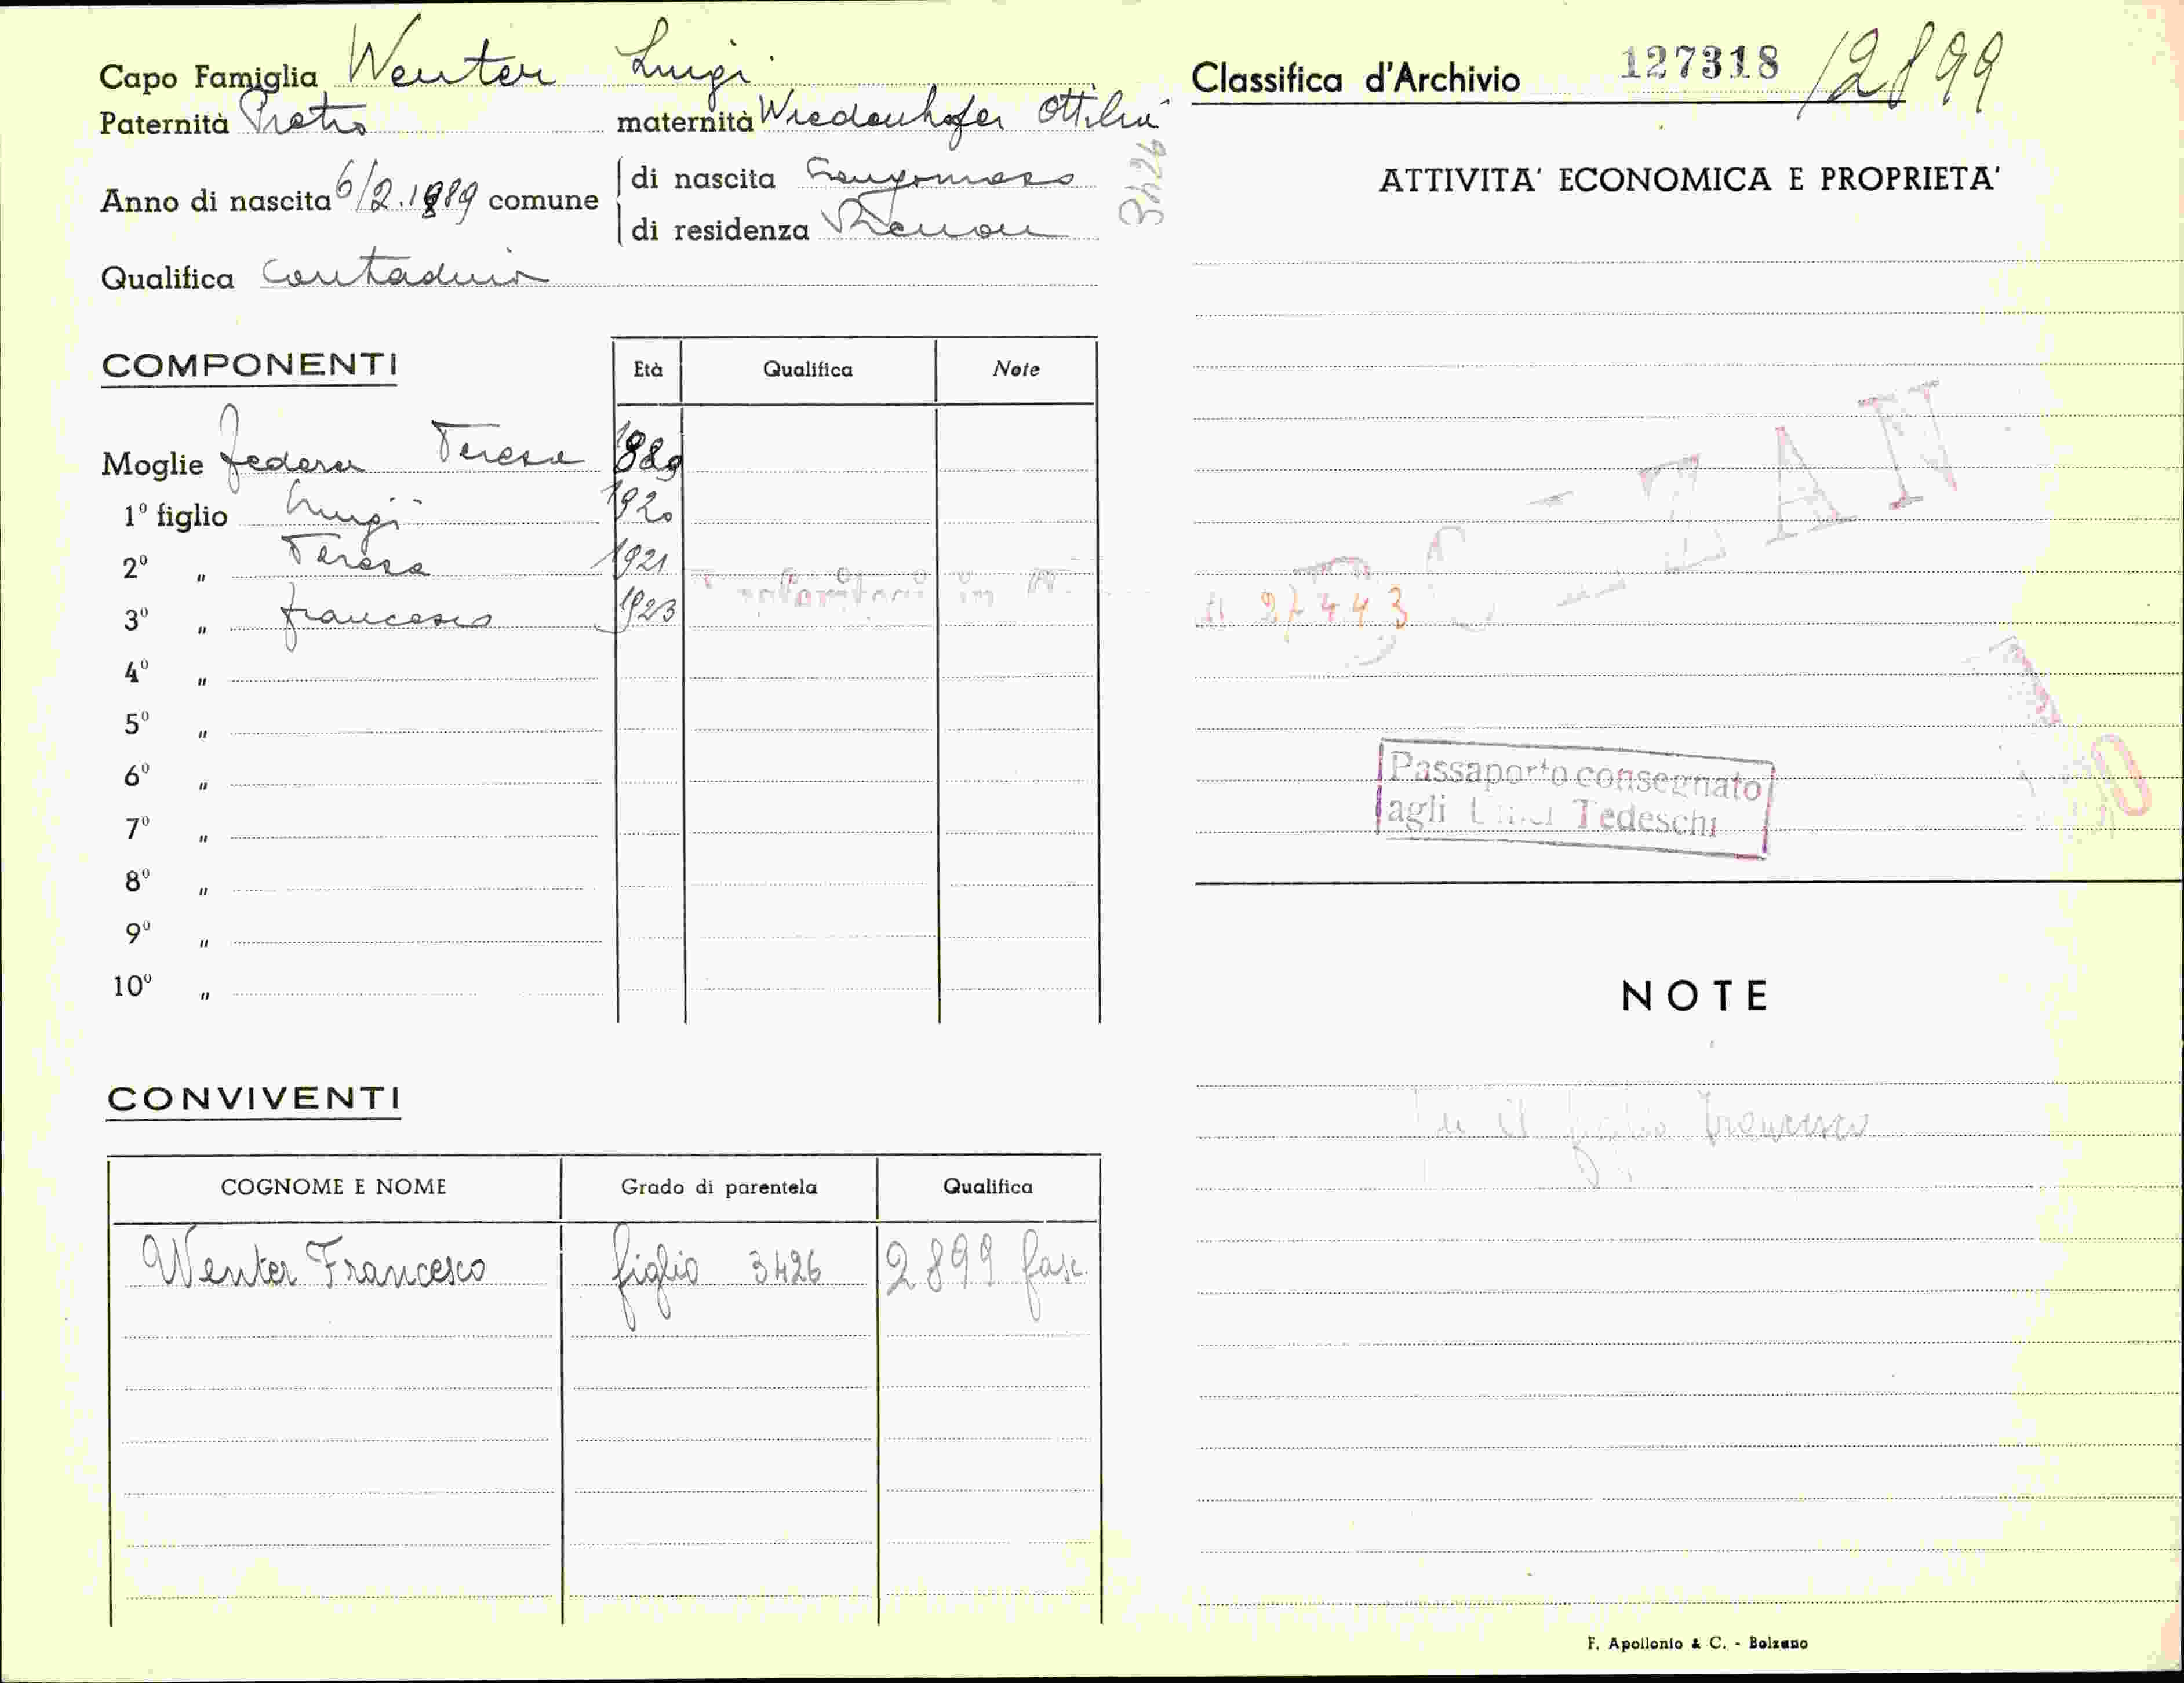 Capo Famiglia Wenter Luigi
Paternità Pietro maternità Wiedenhofer Ottilia
3426
Anno di nascita 6/2.1889 comune
di nascita Longomoso
di residenza Renon
Qualifica contadino
COMPONENTI
Età Qualifica Note
Moglie Federer Teresa 1889
1º figlio Luigi 1920
2º " Teresa 1921
3º " Francesco 1923
4º "
5º "
6º "
7º "
8º "
9º "
10º "
CONVIVENTI
COGNOME E NOME Grado di parentela Qualifica
Wenter Francesco figlio 3426 2899 fasc.
Classifica d'Archivio 127318 /2899
ATTIVITA' ECONOMICA E PROPRIETA'
ZAN
27443
Passaporto consegnato
agli Tedeschi
NOTE
il figlio Francesco
F. Apollonio & C. - Bolzano